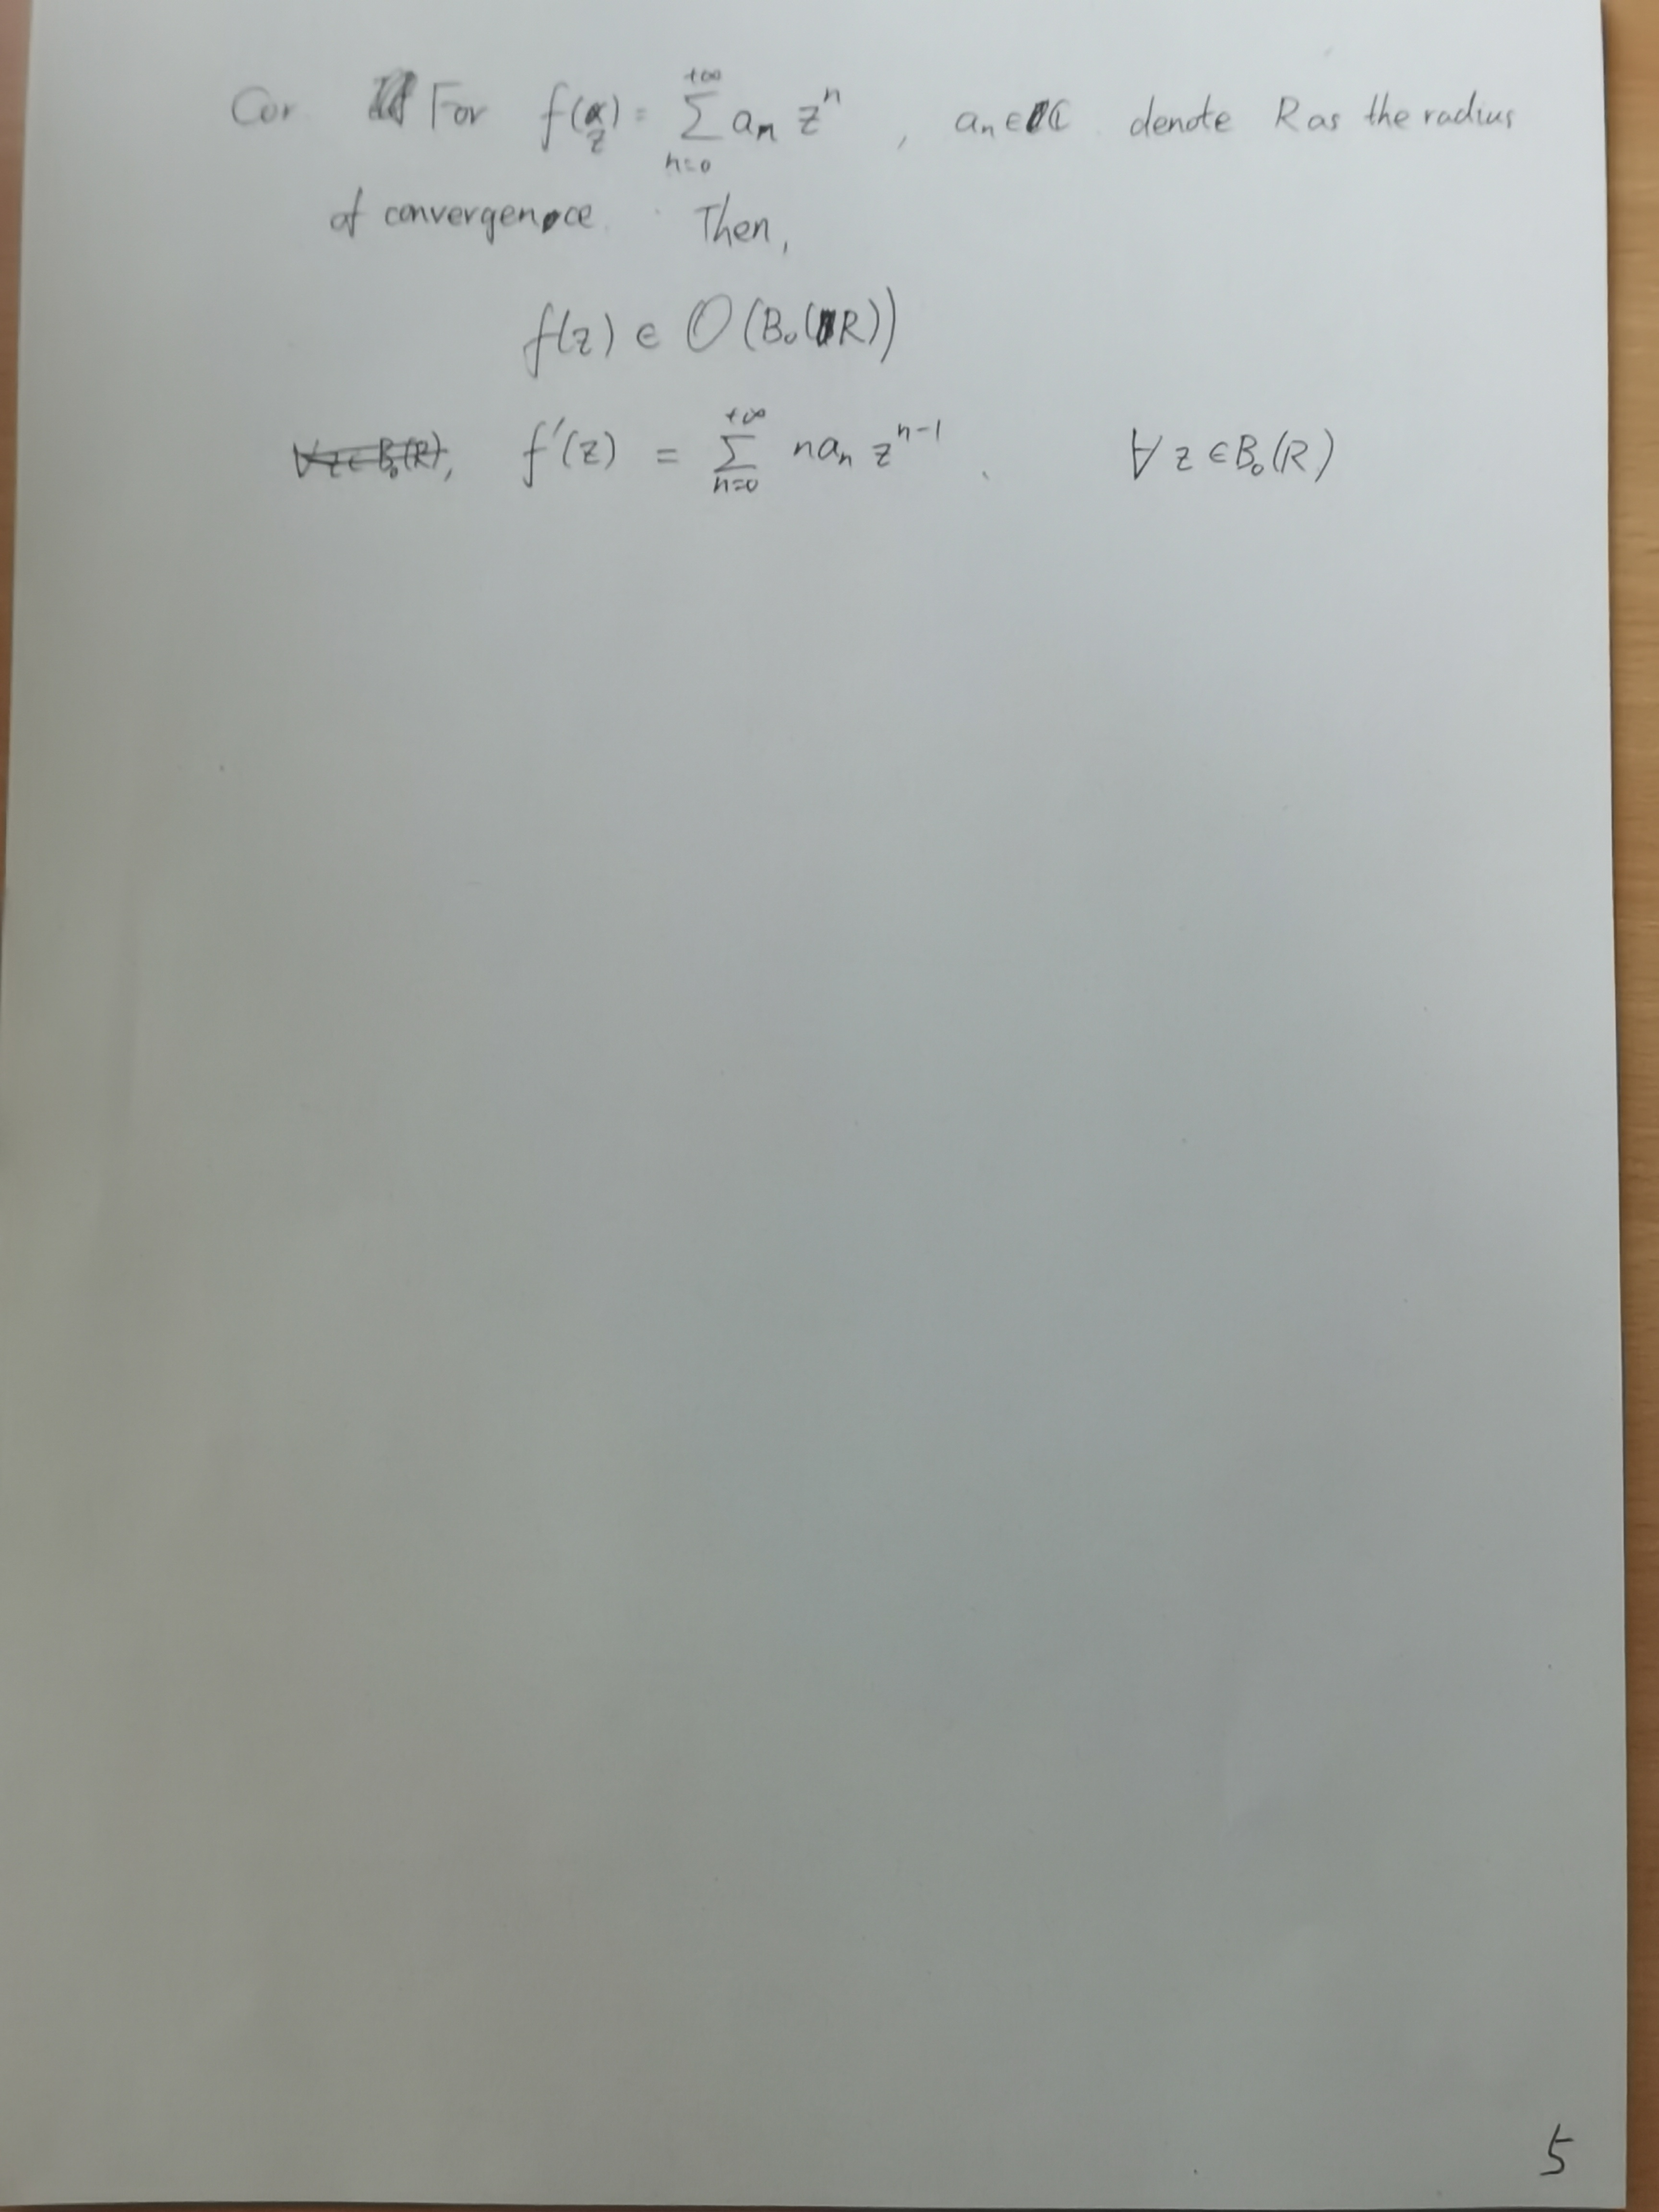 Cor. For f(z) = ∑_{n=0}^{+∞} a_n z^n , a_n ∈ ℂ. denote R as the radius
of convergence. Then,
f(z) ∈ O(B_0(R))
f'(z) = ∑_{n=0}^{+∞} n a_n z^{n-1}. ∀ z ∈ B_0(R)
5